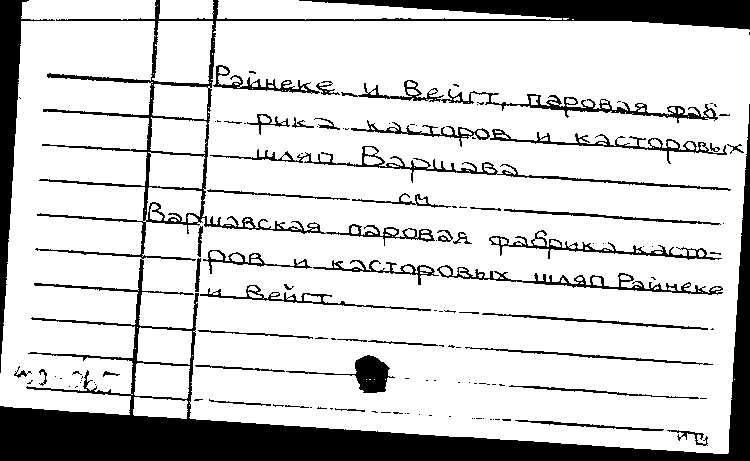 Райнеке и Вейгт, паровая фаб-
рика касторов и касторовых
шляп Варшава
см
Варшавская паровая фабрика касто=
ров и касторовых шляп Райнеке
и Вейгт.